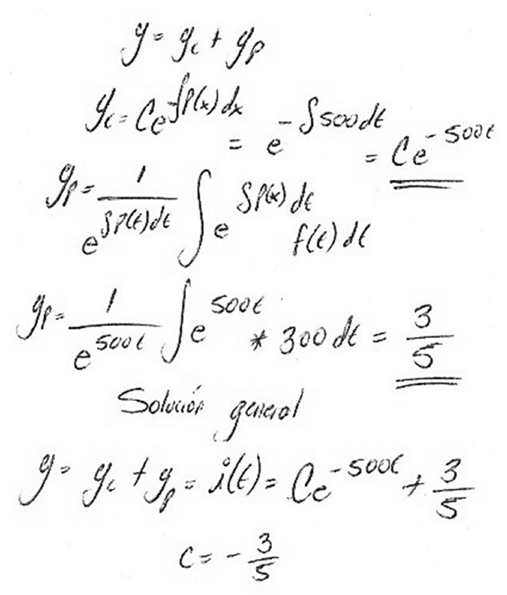 y = y_c + y_p
y_c = Ce^{-∫P(x)dx} = e^{-∫500dt} = Ce^{-500t}
y_p = \frac{1}{e^{∫P(t)dt}} ∫ e^{∫P(x)dt} f(t)dt
y_p = \frac{1}{e^{500t}} ∫ e^{500t} * 300dt = \frac{3}{5}
Solución general
y = y_c + y_p = i(t) = Ce^{-500t} + \frac{3}{5}
c = -\frac{3}{5}